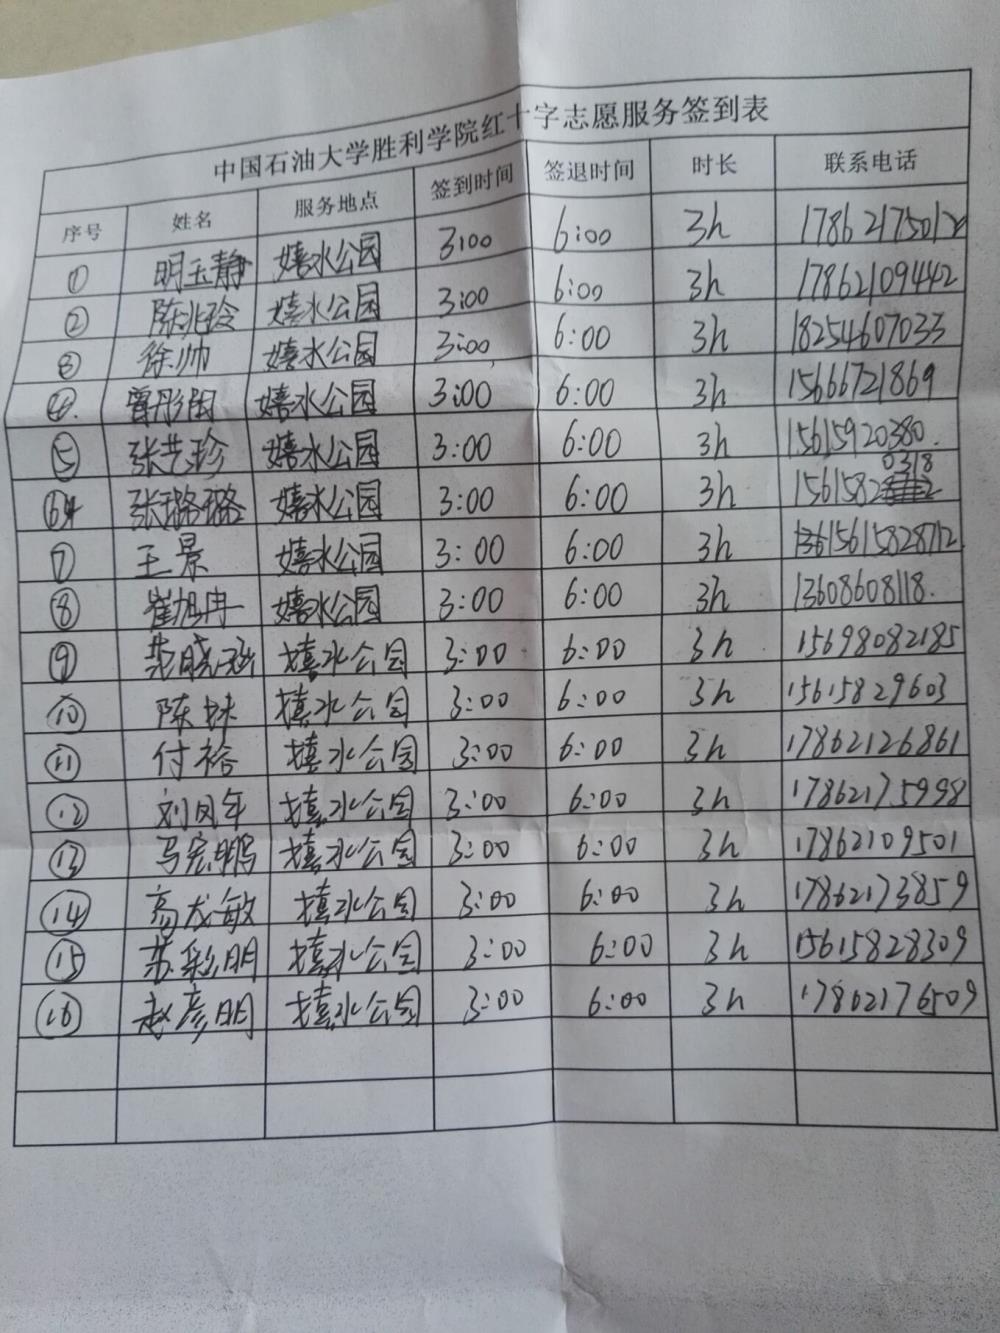 中国石油大学胜利学院红十字志愿服务签到表
序号 姓名 服务地点 签到时间 签退时间 时长 联系电话
① 明玉静 嬉水公园 3:00 6:00 3h
② 陈兆玲 嬉水公园 3:00 6:00 3h 17862109442
③ 徐帅 嬉水公园 3:00 6:00 3h 18254607033
④ 曾彤闰 嬉水公园 3:00 6:00 3h 15666721869
⑤ 张艺珍 嬉水公园 3:00 6:00 3h 15615920380.
⑥ 张璐璐 嬉水公园 3:00 6:00 3h 15615820318
⑦ 王景 嬉水公园 3:00 6:00 3h
⑧ 崔旭冉 嬉水公园 3:00 6:00 3h 13608608118.
⑨ 嬉水公园 3:00 6:00 3h 15698082185
⑩ 陈妹 嬉水公园 3:00 6:00 3h 15615829603
⑪ 付裕 嬉水公园 3:00 6:00 3h 17862126861
⑫ 刘凤年 嬉水公园 3:00 6:00 3h 17862175998
⑬ 马宏鹏 嬉水公园 3:00 6:00 3h 17862109501
⑭ 高成敏 嬉水公园 3:00 6:00 3h 17862173859
⑮ 苏彩明 嬉水公园 3:00 6:00 3h 15615828309
⑯ 赵彦明 嬉水公园 3:00 6:00 3h 17862176509